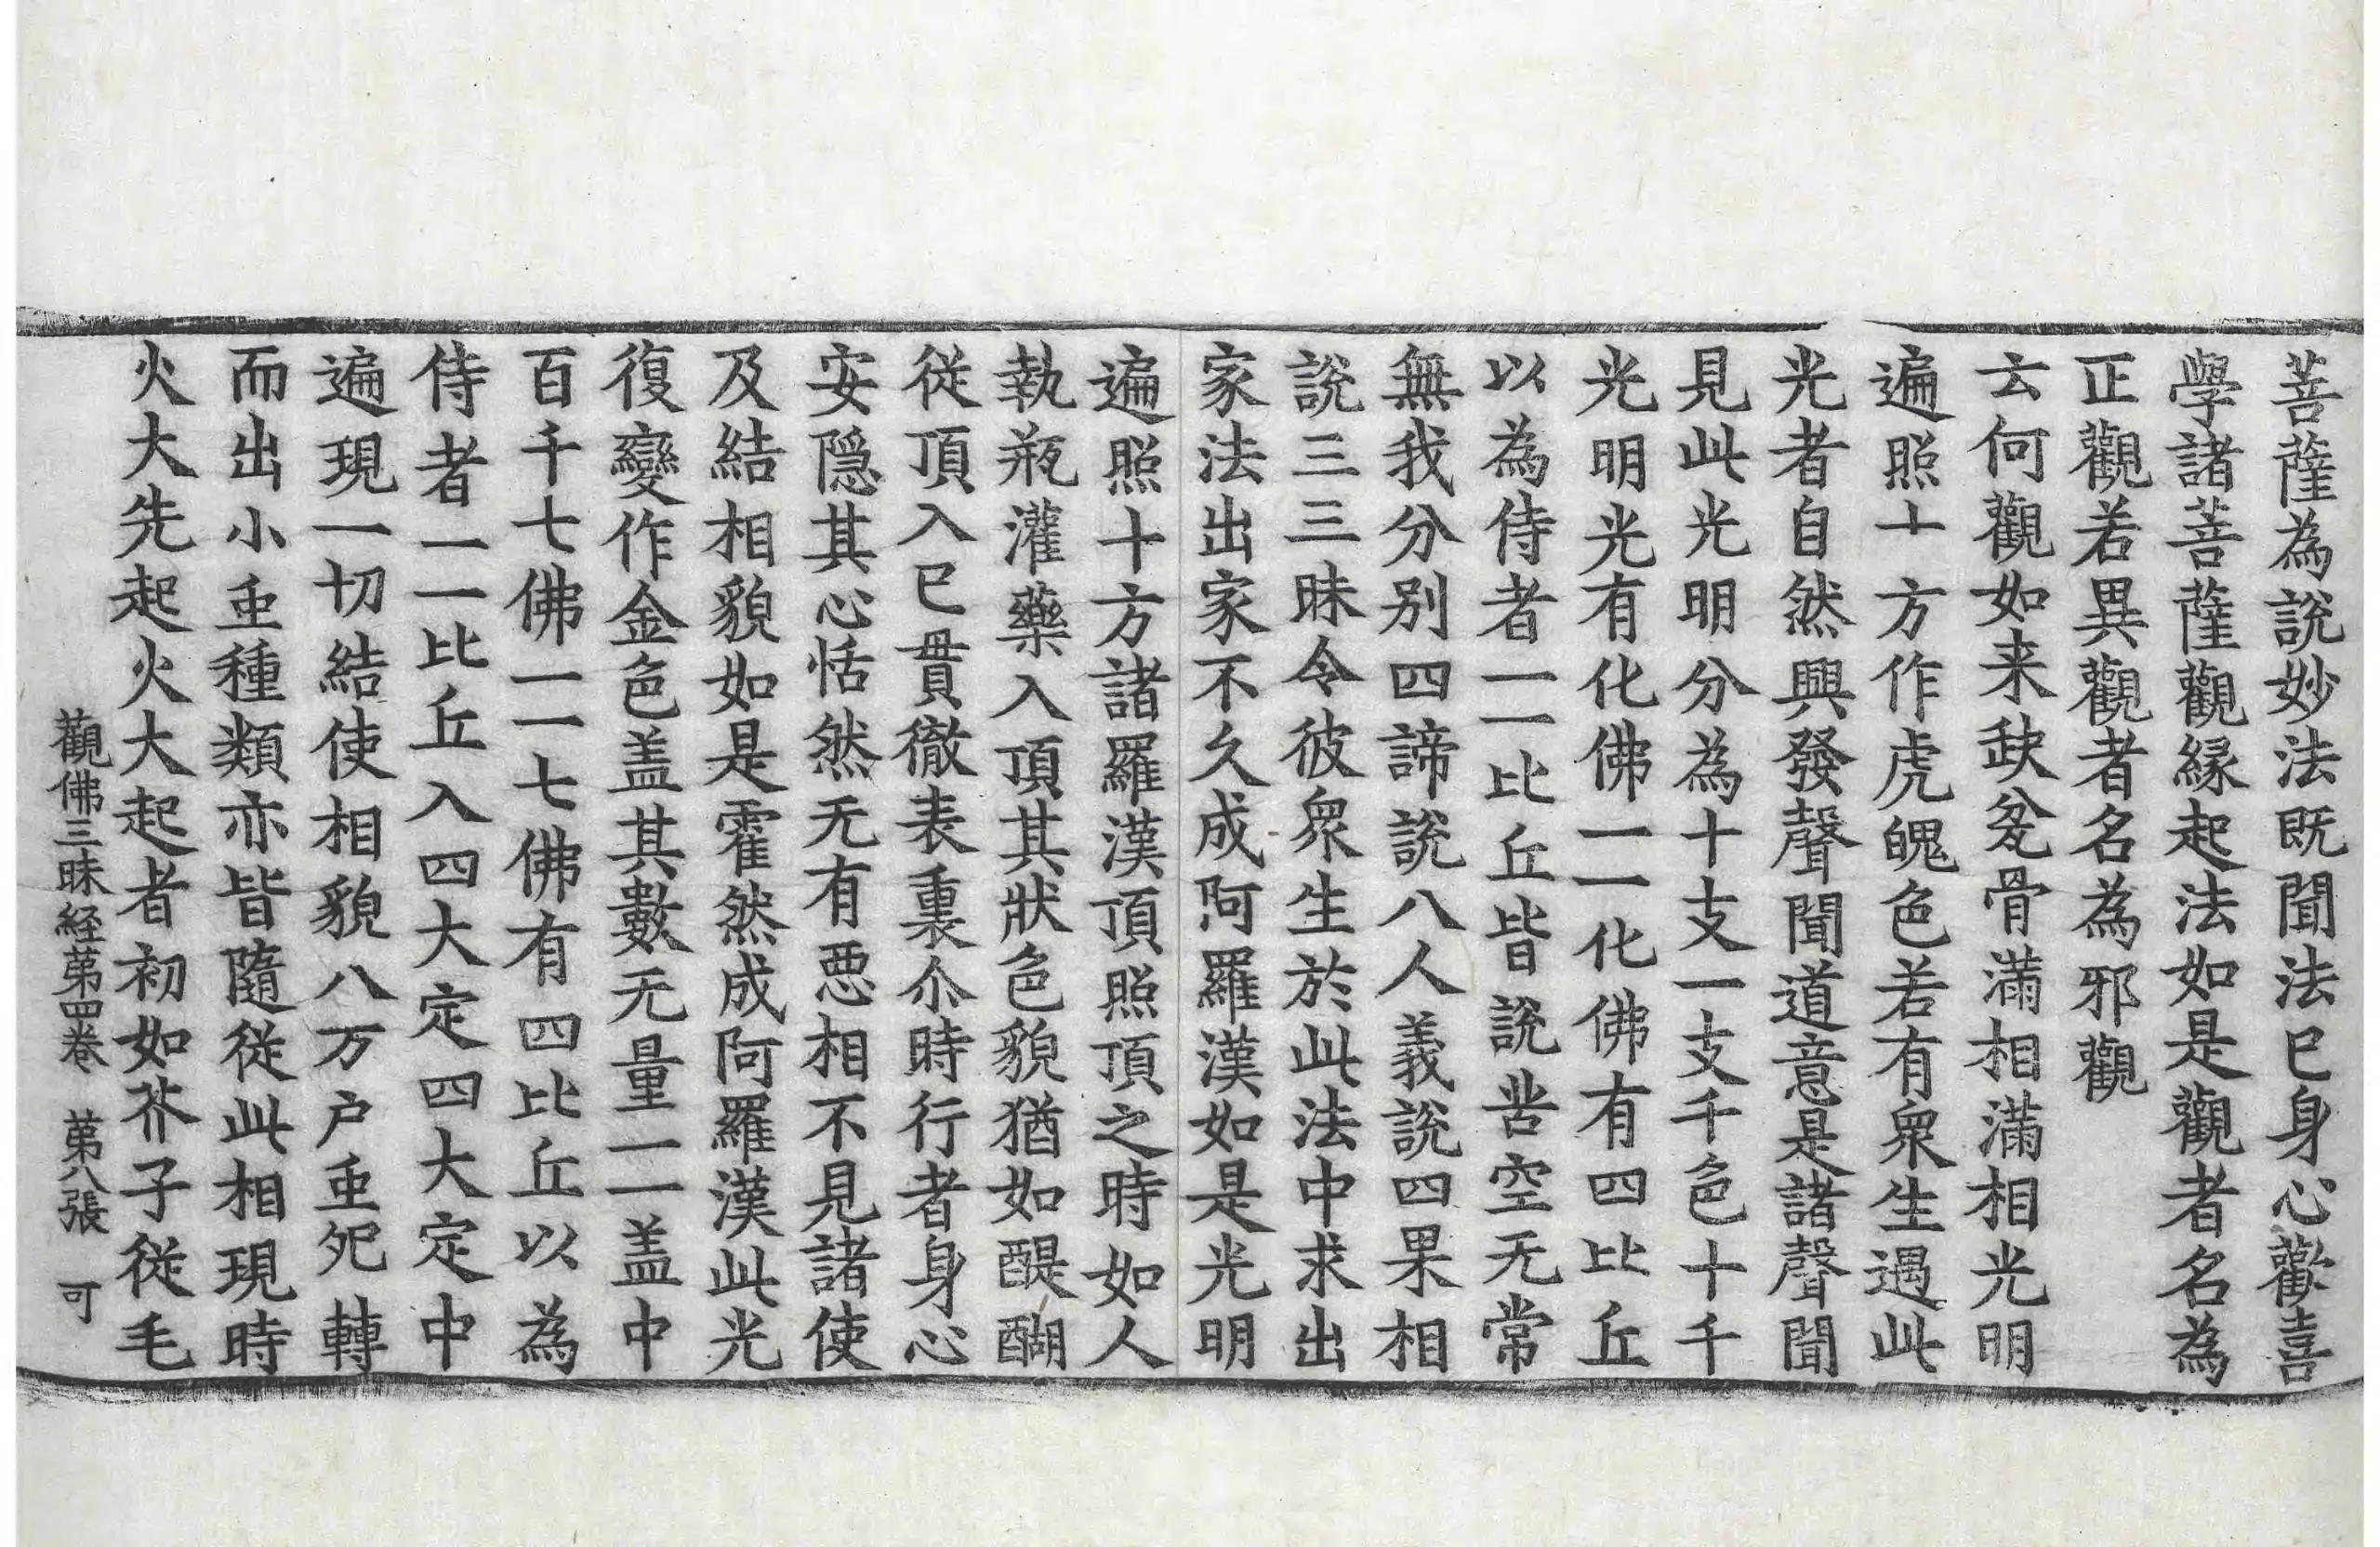 菩薩為說妙法既聞法已身心歡喜
學諸菩薩觀緣起法如是觀者名為
正觀若異觀者名為邪觀
云何觀如来缺瓫骨滿相滿相光明
遍照十方作虎魄色若有衆生遇此
光者自然興發聲聞道意是諸聲聞
見此光明分為十支一支千色十千
光明光有化佛一一化佛有四比丘
以為侍者一一比丘皆說苦空无常
無我分別四諦說八人義說四果相
說三三昧令彼衆生於此法中求出
家法出家不久成阿羅漢如是光明
遍照十方諸羅漢頂照頂之時如人
執瓶灌藥入頂其狀色貌猶如醍醐
従頂入已貫徹表裏尒時行者身心
安隱其心恬然无有惡相不見諸使
及結相貌如是霍然成阿羅漢此光
復變作金色盖其數无量一一盖中
百千七佛一一七佛有四比丘以為
侍者一一比丘入四大定四大定中
遍現一切結使相貌八万户虫死轉
而出小虫種類亦皆隨従此相現時
火大先起火大起者初如芥子従毛
觀佛三昧経第四卷　第八張　可